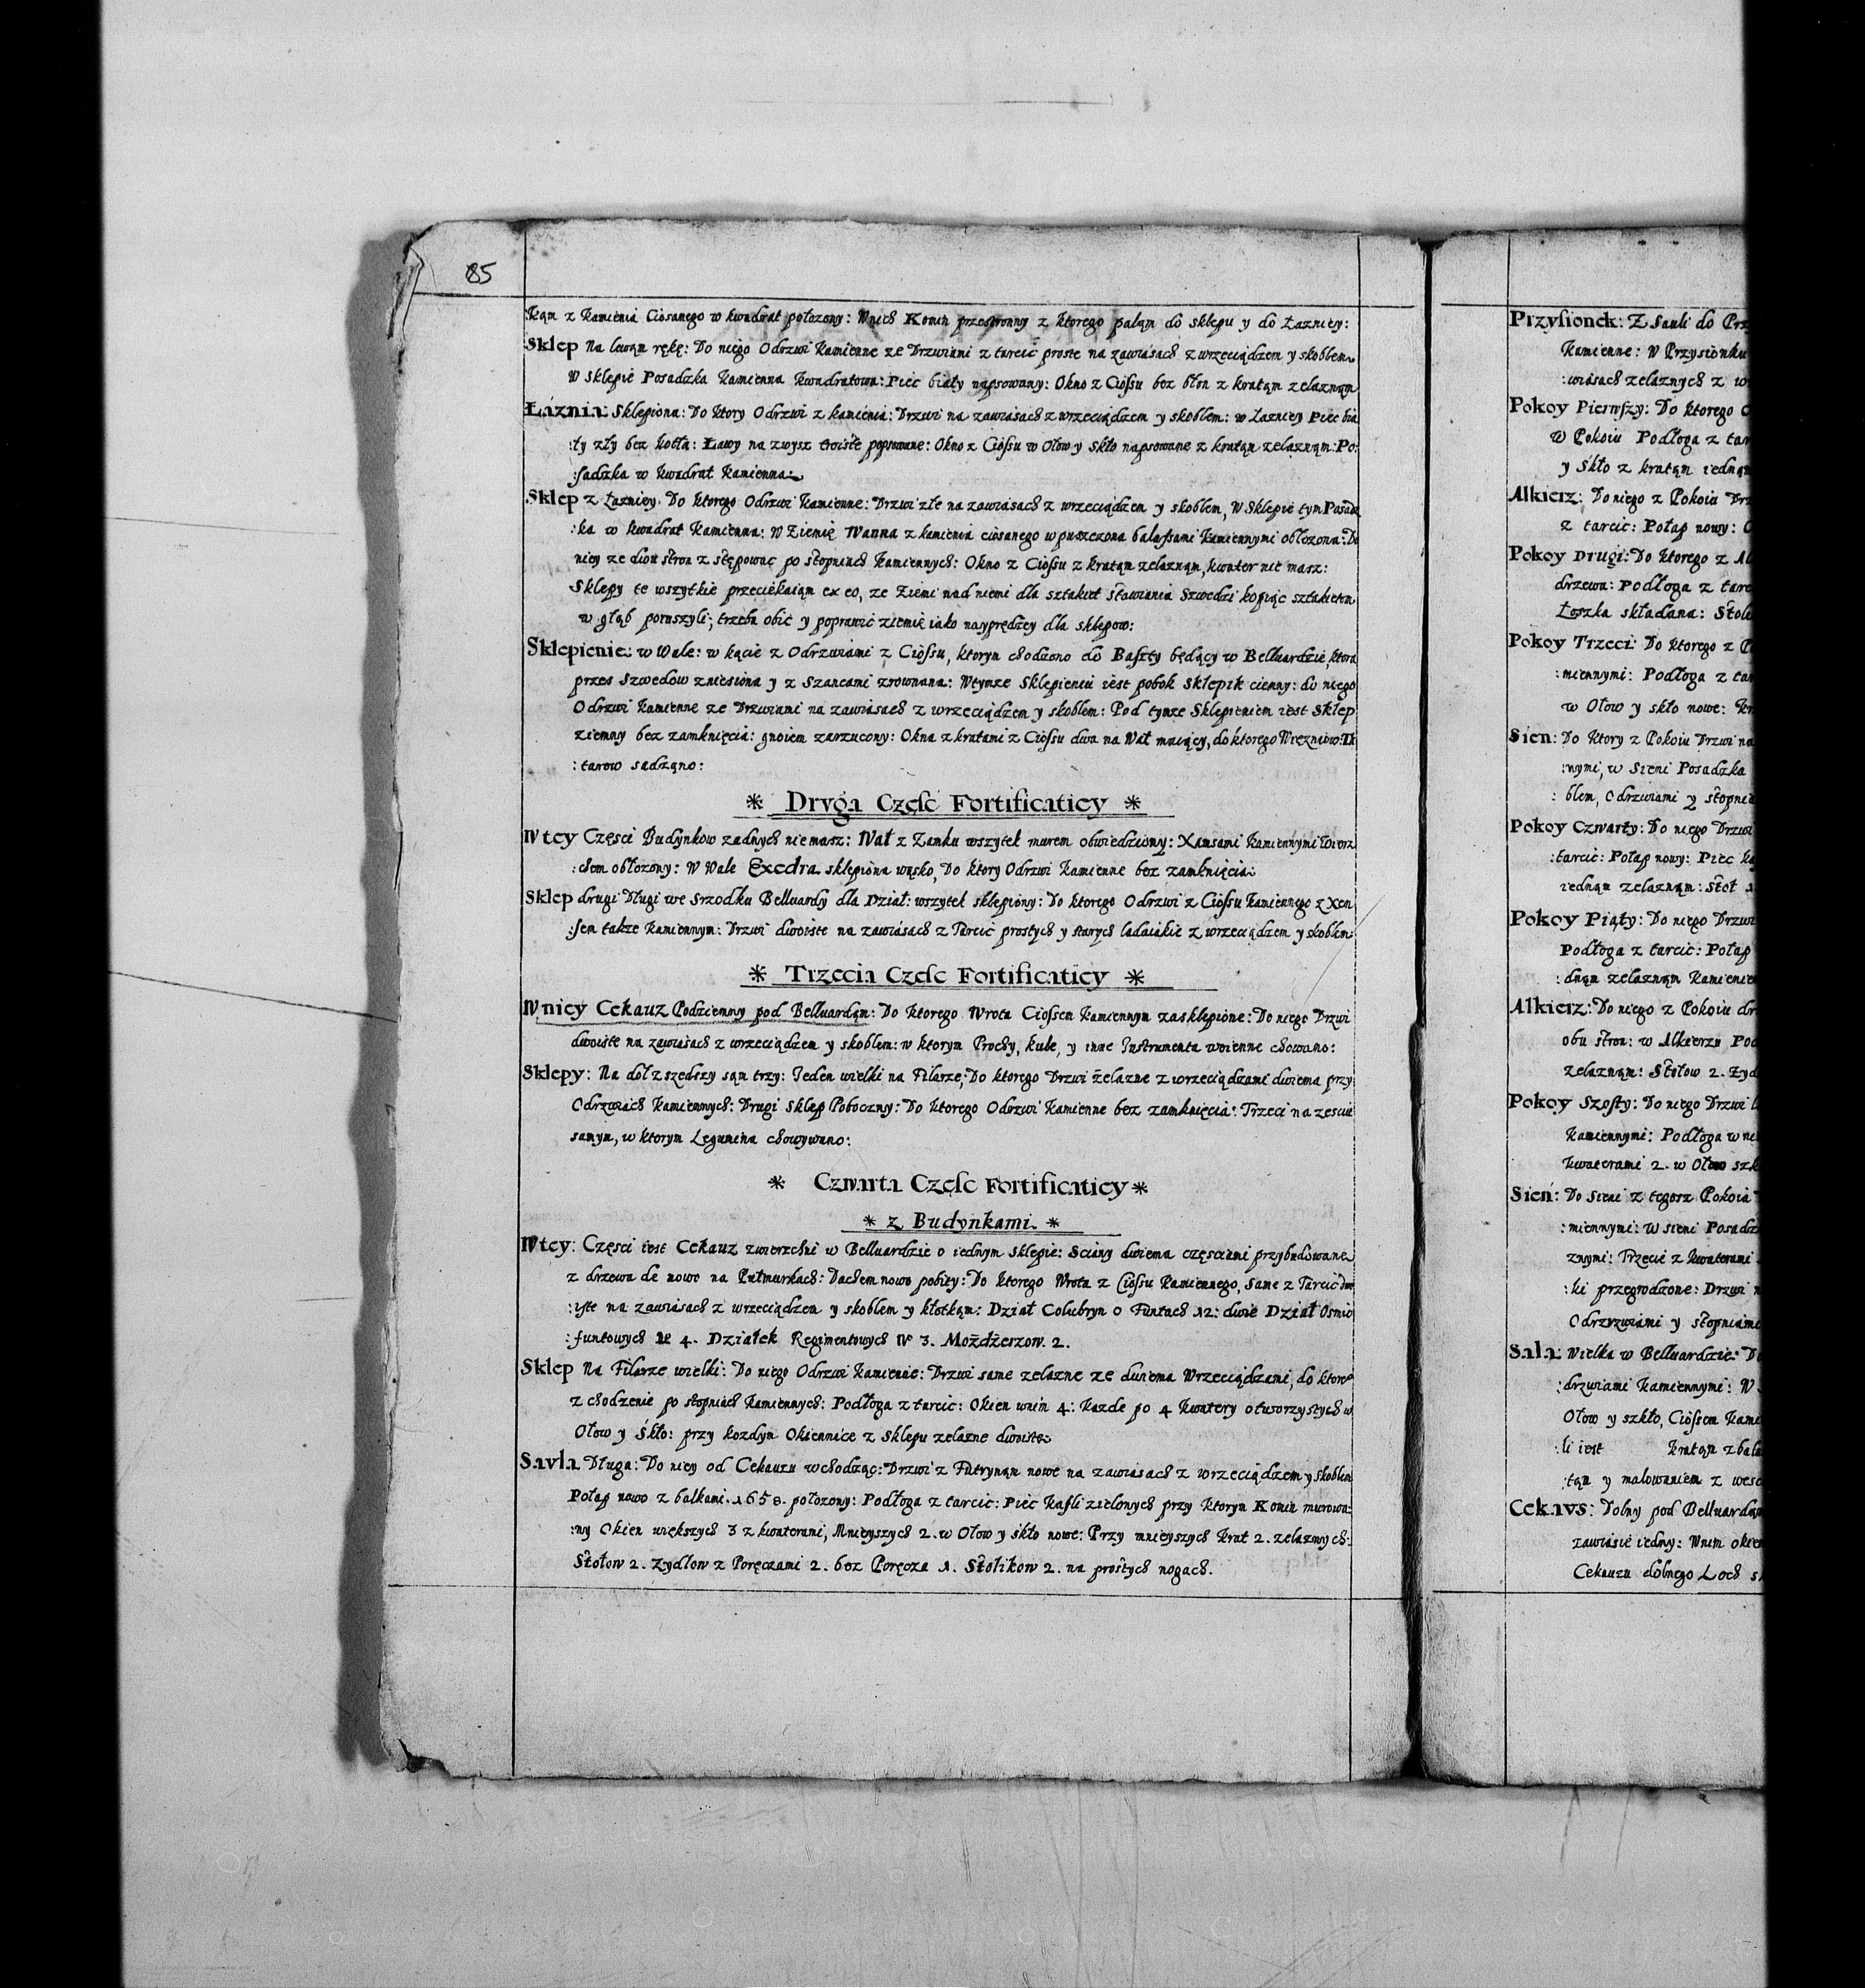 85
kąm z kamienia Ciosanego w kwadrat położony: Wnich Komin przestronny z ktorego paląm do sklepu y do Łazniey:
Sklep Na lewąm rękę: Do niego Odrzwi kamienne ze Drzwiami z tarcic proste na zawiasach z wrzeciądzem y skoblem
W Sklepie Posadzka kamienna kwadratowa: Piec biały napsowany: Okno z Ciossu bez błon z kratąm zelaznąm
Łáznia: Sklepiona: Do ktory Odrzwi z kamienia: Drzwi na zawiasach z wrzeciądzem y skoblem: w Łazniey Piec bia
:ły zły bez kotła: Ławy na zwysz troiste popsowane: Okno z Ciossu w Ołow y Skło napsowane z kratąm zelaznąm: Po:
:sadzka w kwadrat kamienna:
Sklep z Łazniey. Do ktorego Odrzwi kamienne: Drzwi złe na zawiasach z wrzeciądzem y skoblem, W Sklepie tym Posadz
:ka w kwadrat kamienna: W Ziemię Wanna z kamienia ciosanego wpuszczona balassami kamiennymi obłozona: Do
niey ze dwu stron z stępowac po stopniach kamiennych: Okno z Ciossu z kratąm zelaznąm, kwater nie masz:
Sklepy te wszytkie przeciekaiąm ex eo, ze Ziemi nad niemi dla sztakiet stawiania Szwedzi kopiąc sztakietom
w głąb poruszyli; trzeba obić y poprawić ziemię iako nayprędzey dla sklepow:
Sklepienie: w Wale: w kącie z Odrzwiami z Ciossu, ktorym chodzono do Baszty będący w Belluardzie, ktora
przes Szwedow zniesiona y z Szancami zrownana: Wtymze Sklepieniu iest pobok sklepik ciemny: do niego
Odrzwi kamienne ze Drzwiami na zawiasach z wrzeciądzem y skoblem: Pod tymze Sklepieniem iest Sklep
ziemny bez zamknięcia: gnoiem zarzucony: Okna z kratami z Ciossu dwa na Wał maiący, do ktorego Więzniow Ta
:tarow sadząno:
* Drvga Częsc Fortificatiey *
Wtey Częsci Budynkow zadnych nie masz: Wał z Zamku wszytek murem obwiedziony: Xamsami kamiennymi Wierz
:chem obłozony: W Wale Exedra sklepiona wąsko, Do ktory Odrzwi kamienne bez zamknięcia:
Sklep drugi Długi we Srzodku Belluardy dla Dział: wszytek sklepiony: Do ktorego Odrzwi z Ciossu kamiennego z Xem
:sem takze kamiennym: Drzwi dwoiste na zawiasach z Tarcic prostych y starych ladaiakie z wrzeciądzem y skoblem
* Trzecia Częsc Fortificatiey *
Wniey Cekauz Podziemny pod Belluardąm: Do ktorego Wrota Ciossem kamiennym zasklepione: Do niego Drzwi
dwoiste na zawiasach z wrzeciądzem y skoblem: w ktorym Prochy, kule, y inne Instrumenta woienne chowano:
Sklepy: Na doł z szedszy sąm trzy: Jeden wielki na Filarze; Do ktorego Drzwi żelazne z wrzeciądzami dwiema przy
Odrzwiach kamiennych: Drugi Sklep Poboczny: Do ktorego Odrzwi kamienne bez zamknięcia: Trzeci na zesciu
samym, w ktorym Legumina chowywano:
* Czwarta Częsc Fortificatiey *
* z Budynkami *
Wtey: Częsci iest Cekauz zwierzchni w Belluardzie o iednym sklepie: Sciany dwiema częsciami przybudowane
z drzewa de novo na Pułmurkach: Dachem nowo pobity: Do ktorego Wrota z Ciossu kamiennego, same z Tarcic dwo
:iste na zawiasach z wrzeciądzem y skoblem y kłotkąm: Dział Colubryn o Funtach 12: dwie Dział Osmio
:funtowych N 4. Działek Regimentowych N 3. Możdżerzow. 2.
Sklep Na Filarze wielki: Do niego Odrzwi kamienne: Drzwi same zelazne ze dwiema Wrzeciądzami, do ktore°
z chodzenie po stopniach kamiennych: Podłoga z tarcic: Okien wnim 4: kazde po 4 kwatery otworzystych w
Ołow y Skło: przy kozdym Okiennice z Sklepu zelazne dwoiste
Savla Długa: Do niey od Cekauzu wchodząc: Drzwi z Futrynąm nowe na zawiasach z wrzeciądzem y skoblem
Połap nowo z balkami. 1658. połozony: Podłoga z tarcic: Piec kafli zielonych przy ktorym Komin murowa:
:ny Okien większych 3 z kwaterami, Mnieyszych 2. w Ołow y skło nowe: Przy mnieyszych krat 2. zelaznych:
Stołow 2. Zydlow z Poręczami 2. bez Poręcza 1. Stolikow 2. na prostych nogach.
Przysionek: Z Sauli do Prz
kamienne: W Przysionku
:wiasach zelaznych z w
Pokoy Pierwszy: Do ktorego O
w Pokoiu Podłoga z tar
y Skło z kratąm iednąm
Alkierz: Do niego z Pokoiu Drz
z tarcic: Połap nowy: O
Pokoy Drugi: Do ktorego z Al
drzewa: Podłoga z tarc
Łoszka składana: Stole
Pokoy Trzeci: Do ktorego z P
:miennymi: Podłoga z tar
w Ołow y skło nowe: kr
Sien: Do ktory z Pokoiu Drzwi na
:nymi, w Sieni Posadzka
:blem, Odrzwiami y stopnia
Pokoy Czwarty: Do niego Drzwi
:tarcic: Połap nowy: Piec ka
iednąm zelaznąm: Stoł 1
Pokoy Piąty: Do niego Drzwi
Podłoga z tarcic: Połap
:dnąm zelaznąm kamienie
Alkierz: Do niego z Pokoiu dr
obu stron: w Alkierzu Pod
zelaznąm: Stołow 2. Zyd
Pokoy Szosty: Do niego Drzwi
kamiennymi: Podłoga w ni
kwaterami 2. w Ołow szk
Sień: Do Sieni z tegosz Pokoia
:miennymi: W sieni Posadz
znymi: Trzecie z kwaterami
:ki przegrodzone: Drzwi n
Odrzwiami y stopniami
Sala: Wielka w Belluardzie: D
:drzwiami kamiennymi: W
Ołow y szkło, Ciossem kami
:li iest kratąm z bala
:tąm y malowaniem z wesc
Cekavs: Dolny pod Belluardąm
zawiasie iedny: Wnim okien
Cekauzu dolnego Loch s